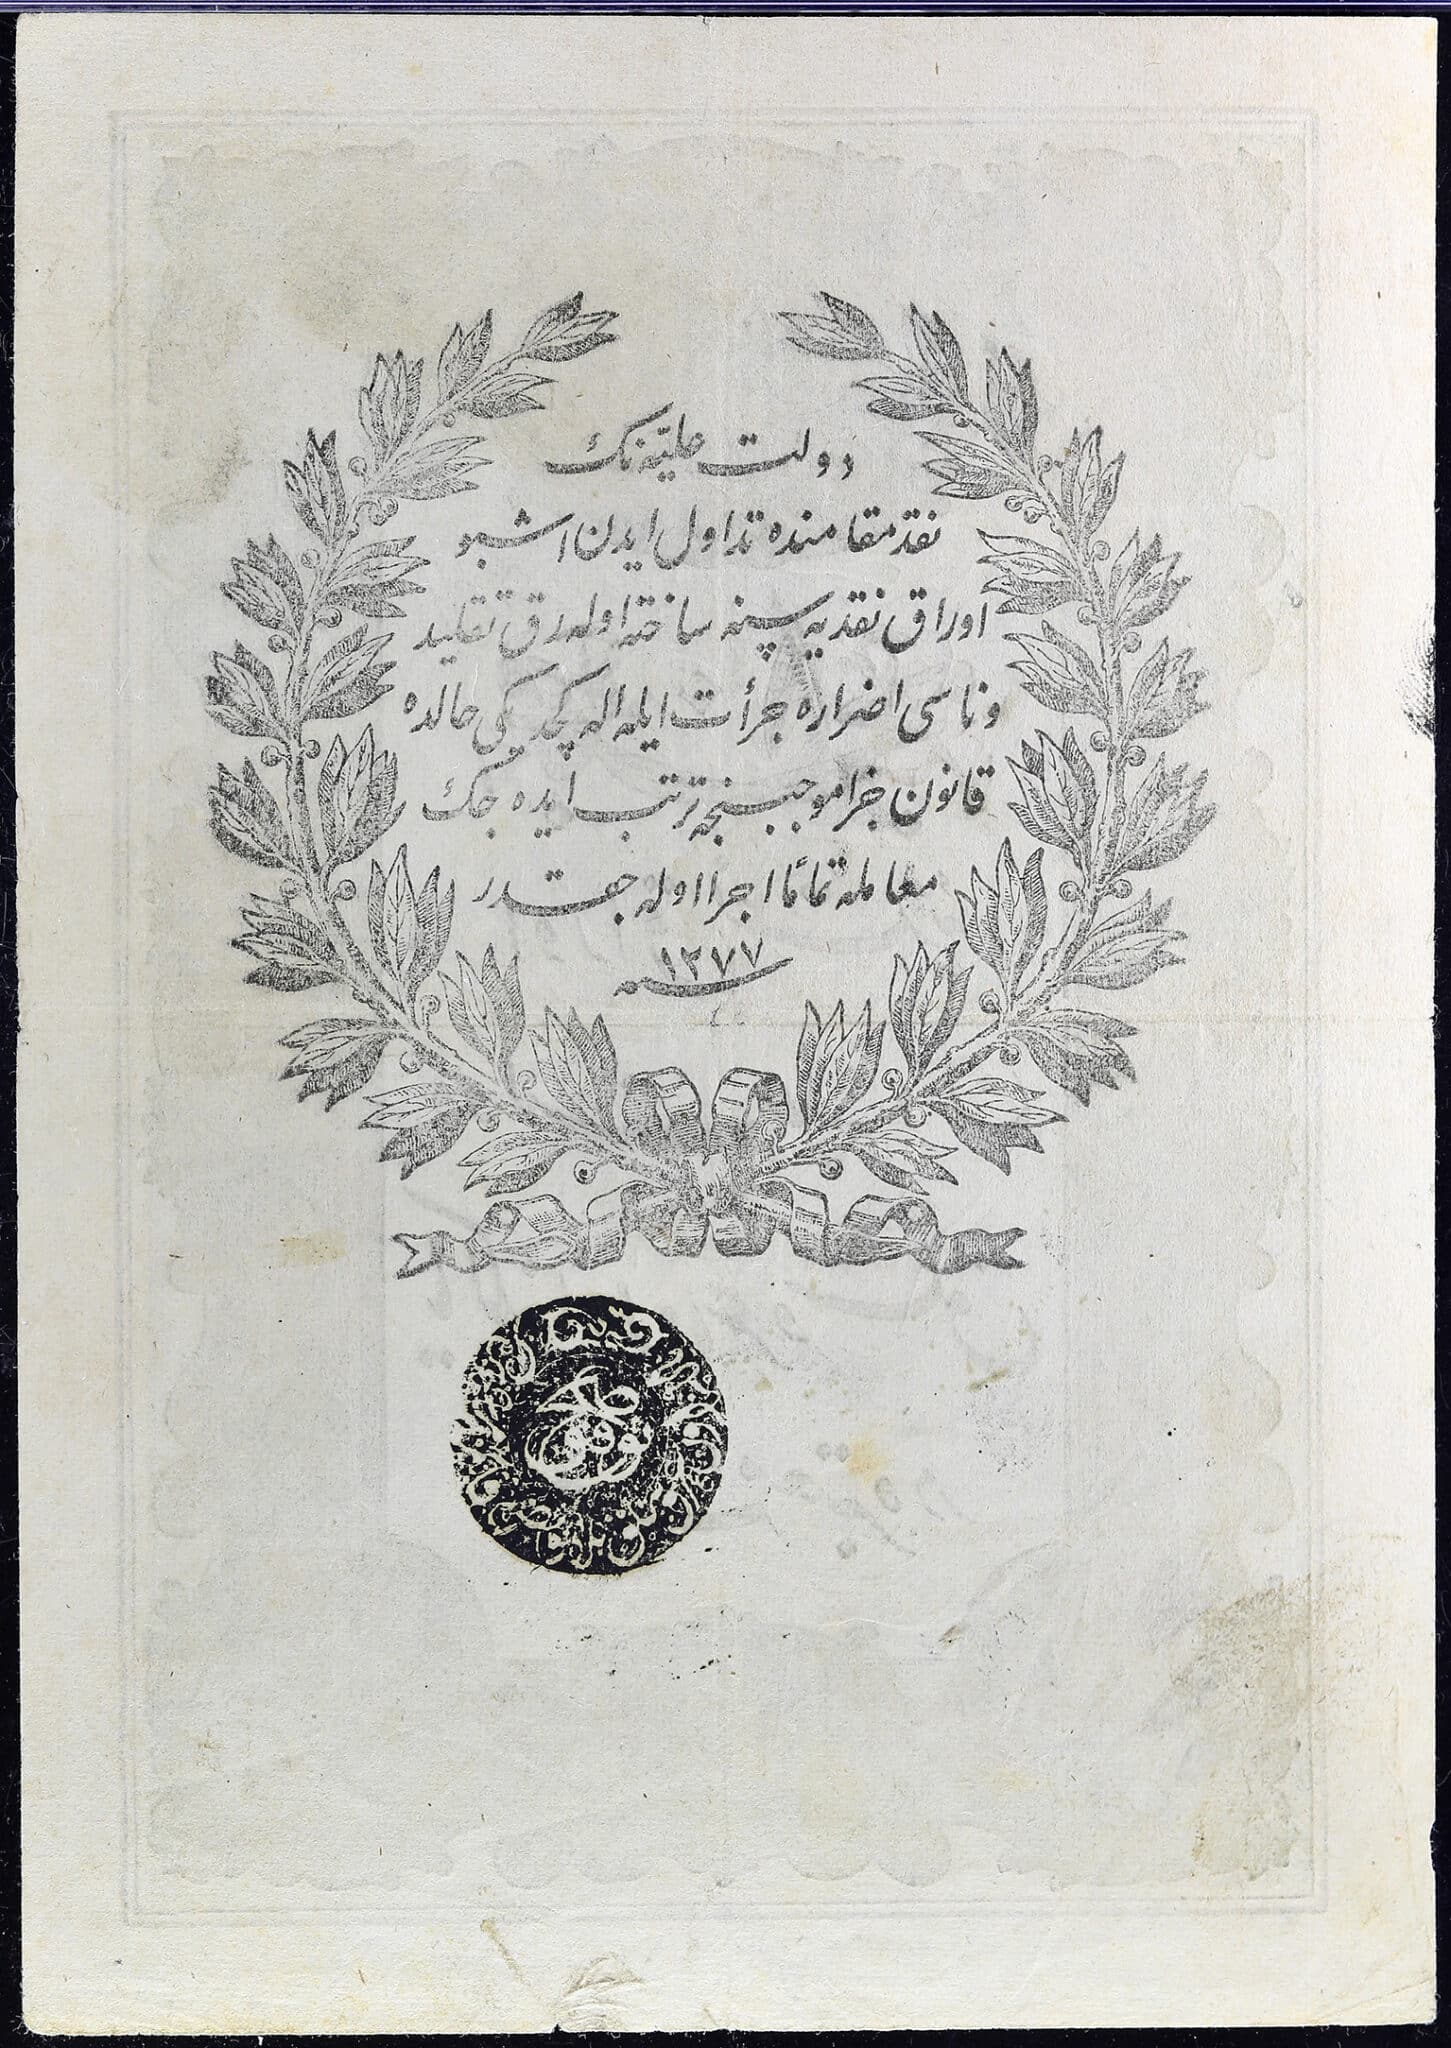 دولت عليّه نك
نقد مقامنده تداول ايدن اشبو
اوراق نقديه سنه ساخته اوله رق تقليد
وناسى اضراره جرأت ايله اله كچديكى حالده
قانون جزا موجبنجه ترتب ايده جك
معامله تمامًا اجرا اوله جقدر
سنه ١٢٧٧